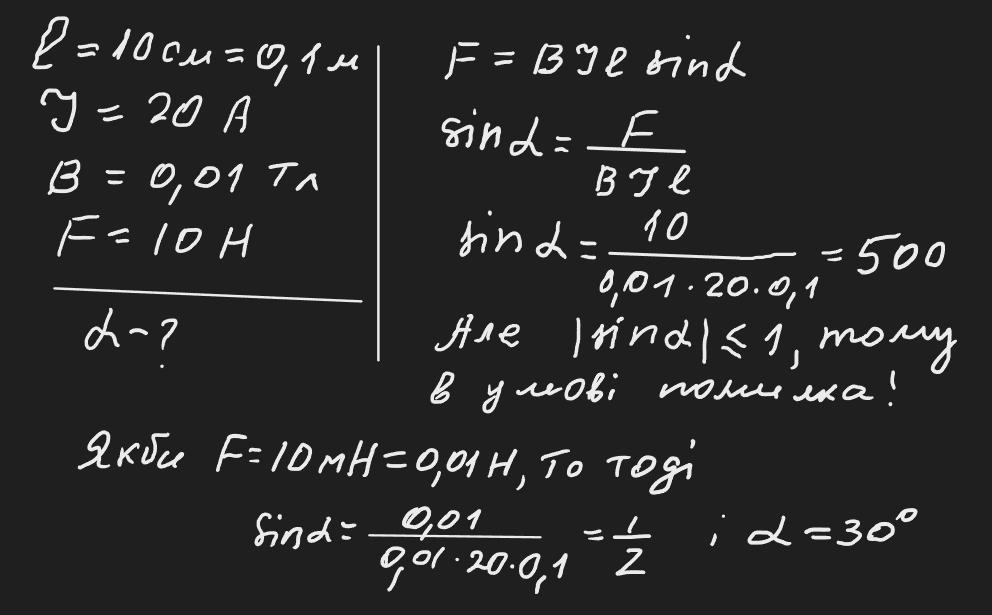 l = 10 см = 0,1 м
I = 20 А
B = 0,01 Тл
F = 10 Н
α - ?
F = B I l sin α
sin α = F / B I l
sin α = 10 / 0,01 · 20 · 0,1 = 500
Але |sin α| ≤ 1, тому
в умові помилка!
Якби F = 10 мН = 0,01 Н, то тоді
sin α = 0,01 / 0,01 · 20 · 0,1 = 1 / 2 і α = 30°